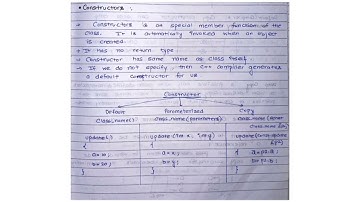 • Constructors :
→ Constructors is a special member function of the
class. It is automatically invoked when an object
is created.
→ It has no return type.
→ Constructor has same name as class itself.
→ If we do not specify, then C++ compiler generates
a default constructor for us
Constructor
Default Parameterized Copy
Class_name() class_name(parameters) class_name(
update() update(int x, int y) update(
{ {
a=10; a=x; a=p2.a;
b=20; b=y; b=p2.b;
} } }